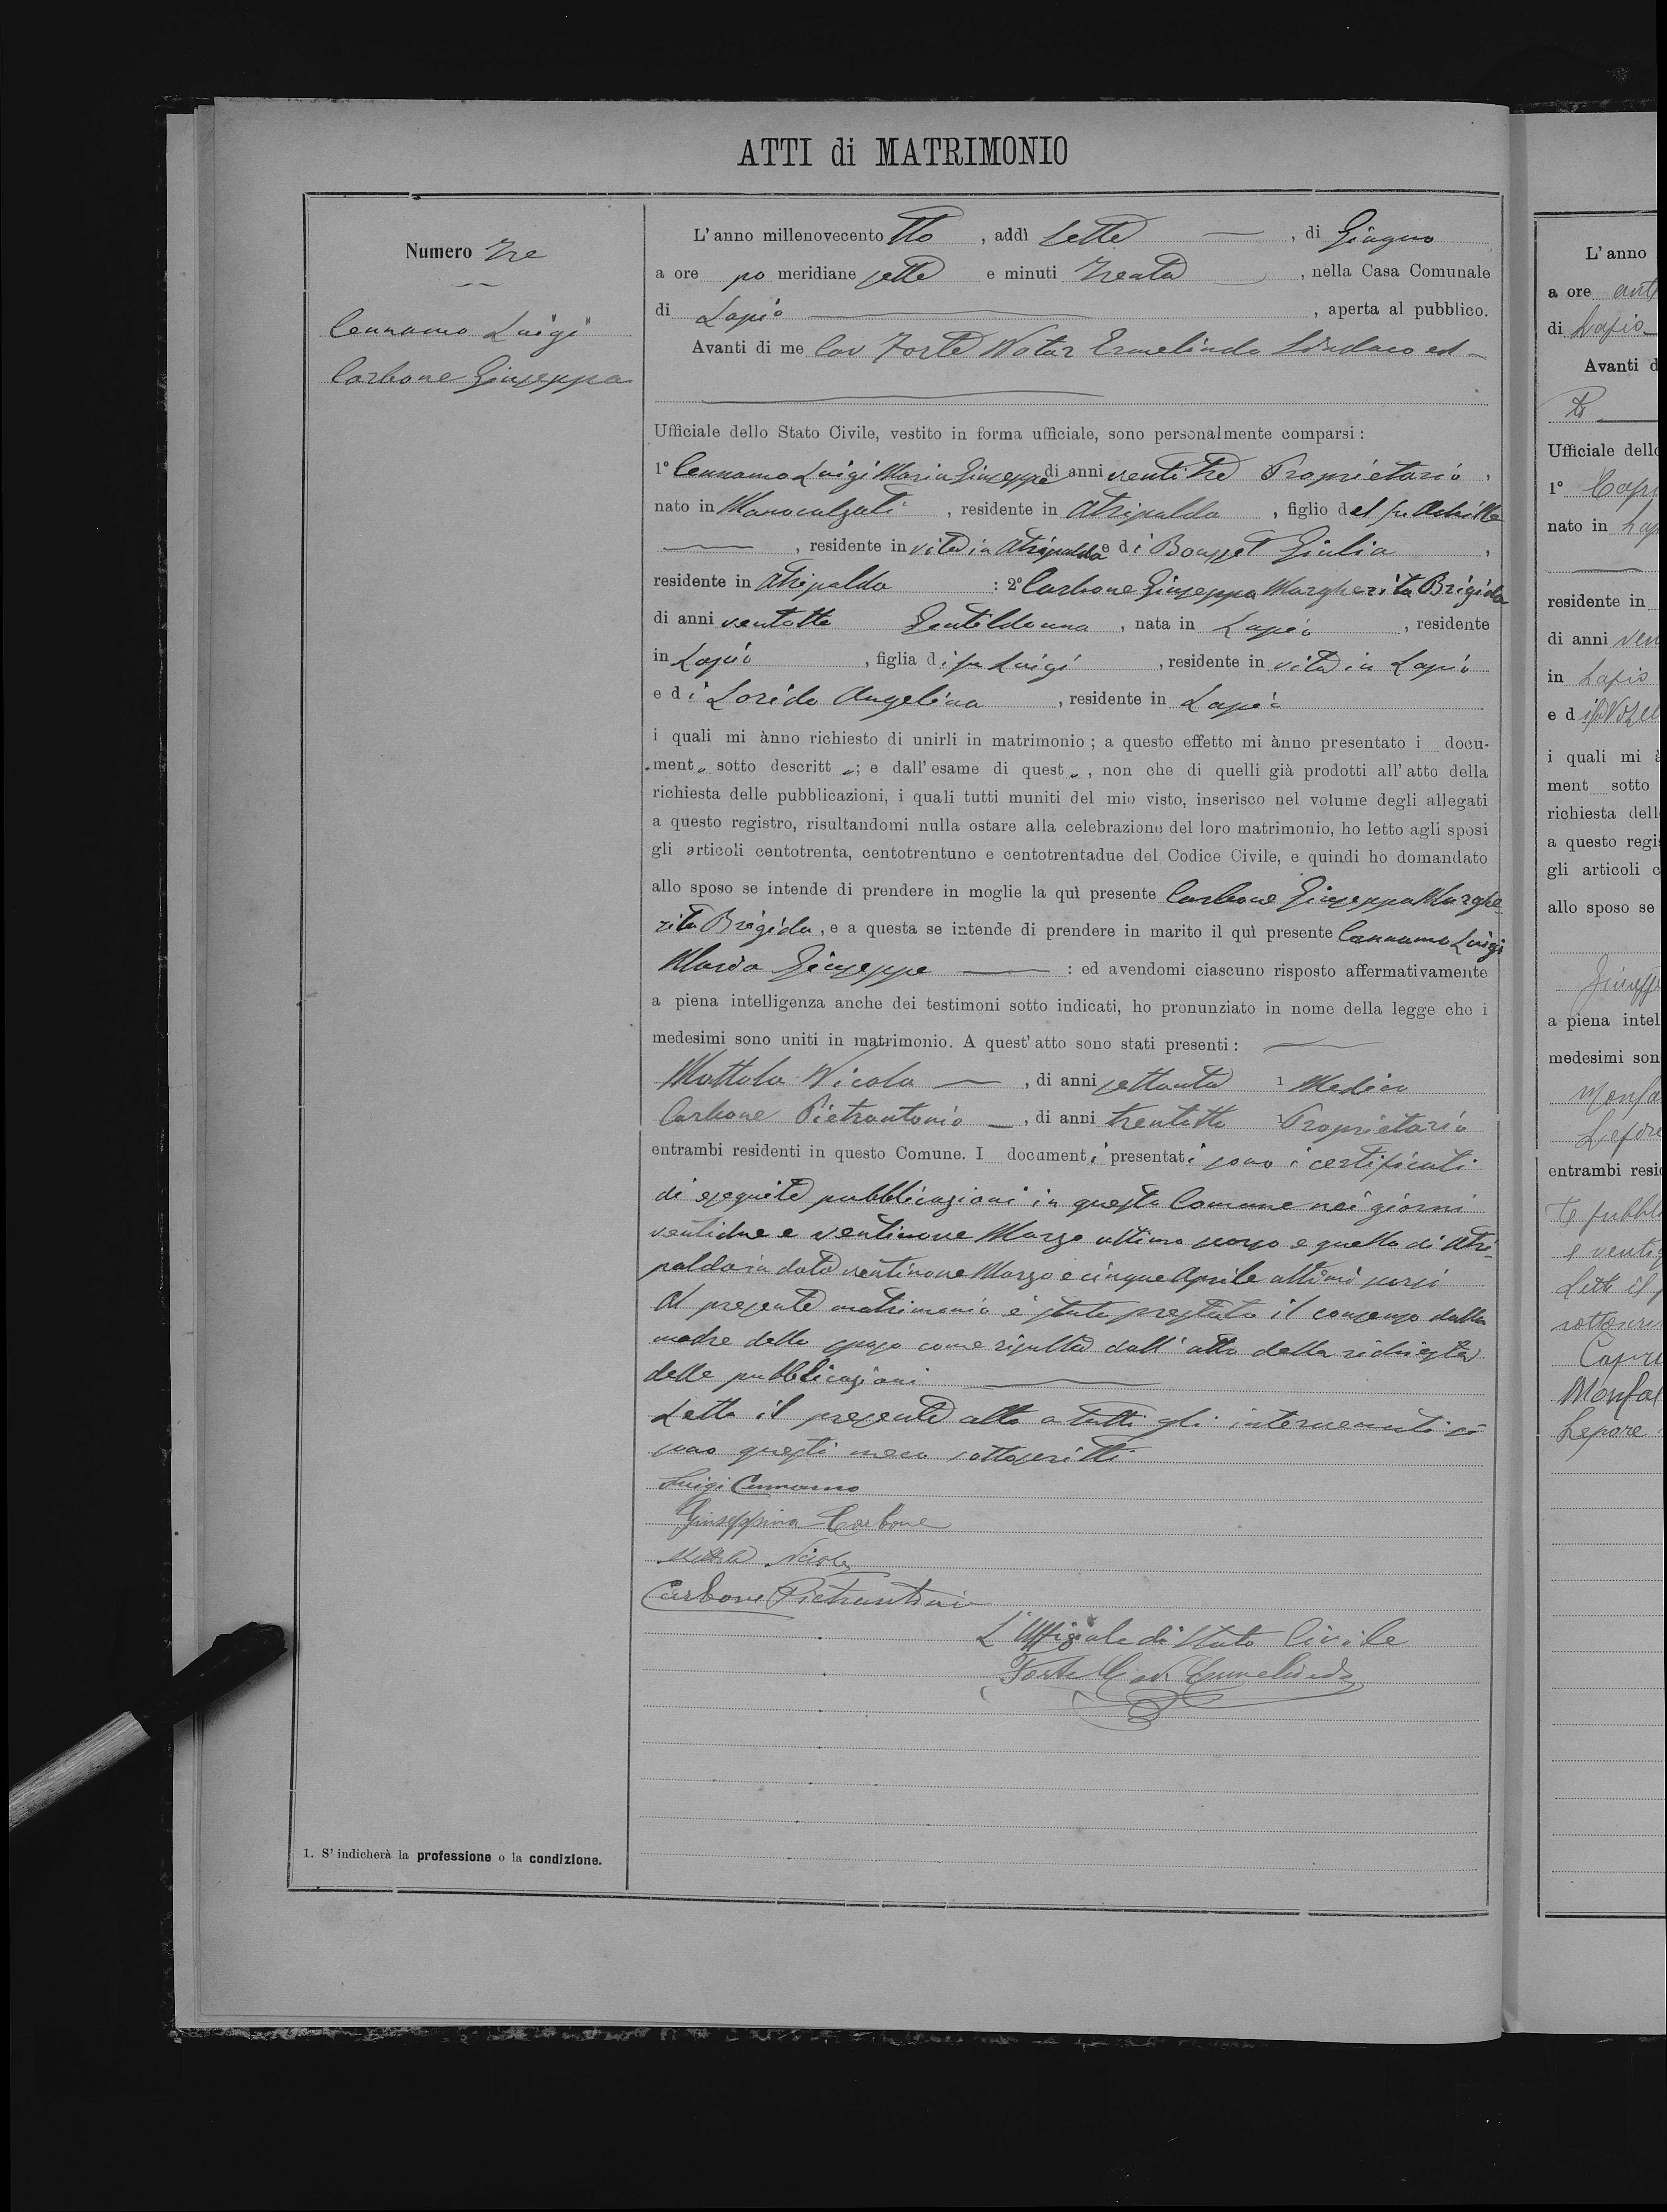 ATTI di MATRIMONIO
Numero Tre
Cennamo Luigi
Carbone Giuseppa
1. S' indicherà la professione o la condizione.
L' anno millenovecento otto , addì sette , di Giugno
a ore po meridiane sette e minuti trenta , nella Casa Comunale
di Lapio , aperta al pubblico.
Avanti di me Cav Forte Notar Ermelindo Sindaco ed
Ufficiale dello Stato Civile, vestito in forma ufficiale, sono personalmente comparsi :
1° Cennamo Luigi Maria Giuseppe di anni ventitre Proprietario ,
nato in Manocalzati , residente in Atripalda , figlio del fu Achille
, residente in vita in Atripalda e di Bousset Giulia ,
residente in Atripalda : 2° Carbone Giuseppa Margherita Brigida
di anni ventotto Gentildonna , nata in Lapio , residente
in Lapio , figlia di fu Luigi , residente in vita in Lapio
e di Loride Angelina , residente in Lapio
i quali mi ànno richiesto di unirli in matrimonio ; a questo effetto mi ànno presentato i docu-
ment „ sotto descritt „; e dall' esame di quest „ , non che di quelli già prodotti all' atto della
richiesta delle pubblicazioni, i quali tutti muniti del mio visto, inserisco nel volume degli allegati
a questo registro, risultandomi nulla ostare alla celebrazione del loro matrimonio, ho letto agli sposi
gli articoli centotrenta, centotrentuno e centotrentadue del Codice Civile, e quindi ho domandato
allo sposo se intende di prendere in moglie la quì presente Carbone Giuseppa Marghe
rita Brigida , e a questa se intende di prendere in marito il quì presente Cennamo Luigi
Maria Giuseppe : ed avendomi ciascuno risposto affermativamente
a piena intelligenza anche dei testimoni sotto indicati, ho pronunziato in nome della legge che i
medesimi sono uniti in matrimonio. A quest' atto sono stati presenti :
Mottola Nicola , di anni settanta 1 Medico
Carbone Pietrantonio , di anni trentotto 1 Proprietario
entrambi residenti in questo Comune. I documenti presentati sono i certificati
di eseguite pubblicazioni in questo Comune nei giorni
ventidue e ventinove Marzo ultimo scorso e quello di Atri-
palda in data ventinove Marzo e cinque Aprile ultimi scorsi
Al presente matrimonio è stato prestato il consenso dalla
madre dello sposo come risulta dall' atto della richiesta
delle pubblicazioni
Letto il presente atto a tutti gli intervenuti si
sono questi meco sottoscritti
Luigi Cennamo
Giuseppina Carbone
Mottola Nicola
Carbone Pietrantonio
L' Uffiziale di Stato Civile
Forte Ermelindo
L' anno
a ore ant
di Lapio
Avanti d
Ufficiale dell
1° Capr
nato in Lap
residente in
di anni ven
in Lapio
e d
i quali mi
ment sotto
richiesta dell
a questo regi
gli articoli c
allo sposo se
Giuseppe
a piena intel
medesimi son
Monfa
Lepore
entrambi resi
e ventiq
Letto il
sottoscri
Capri
Monfal
Lepore